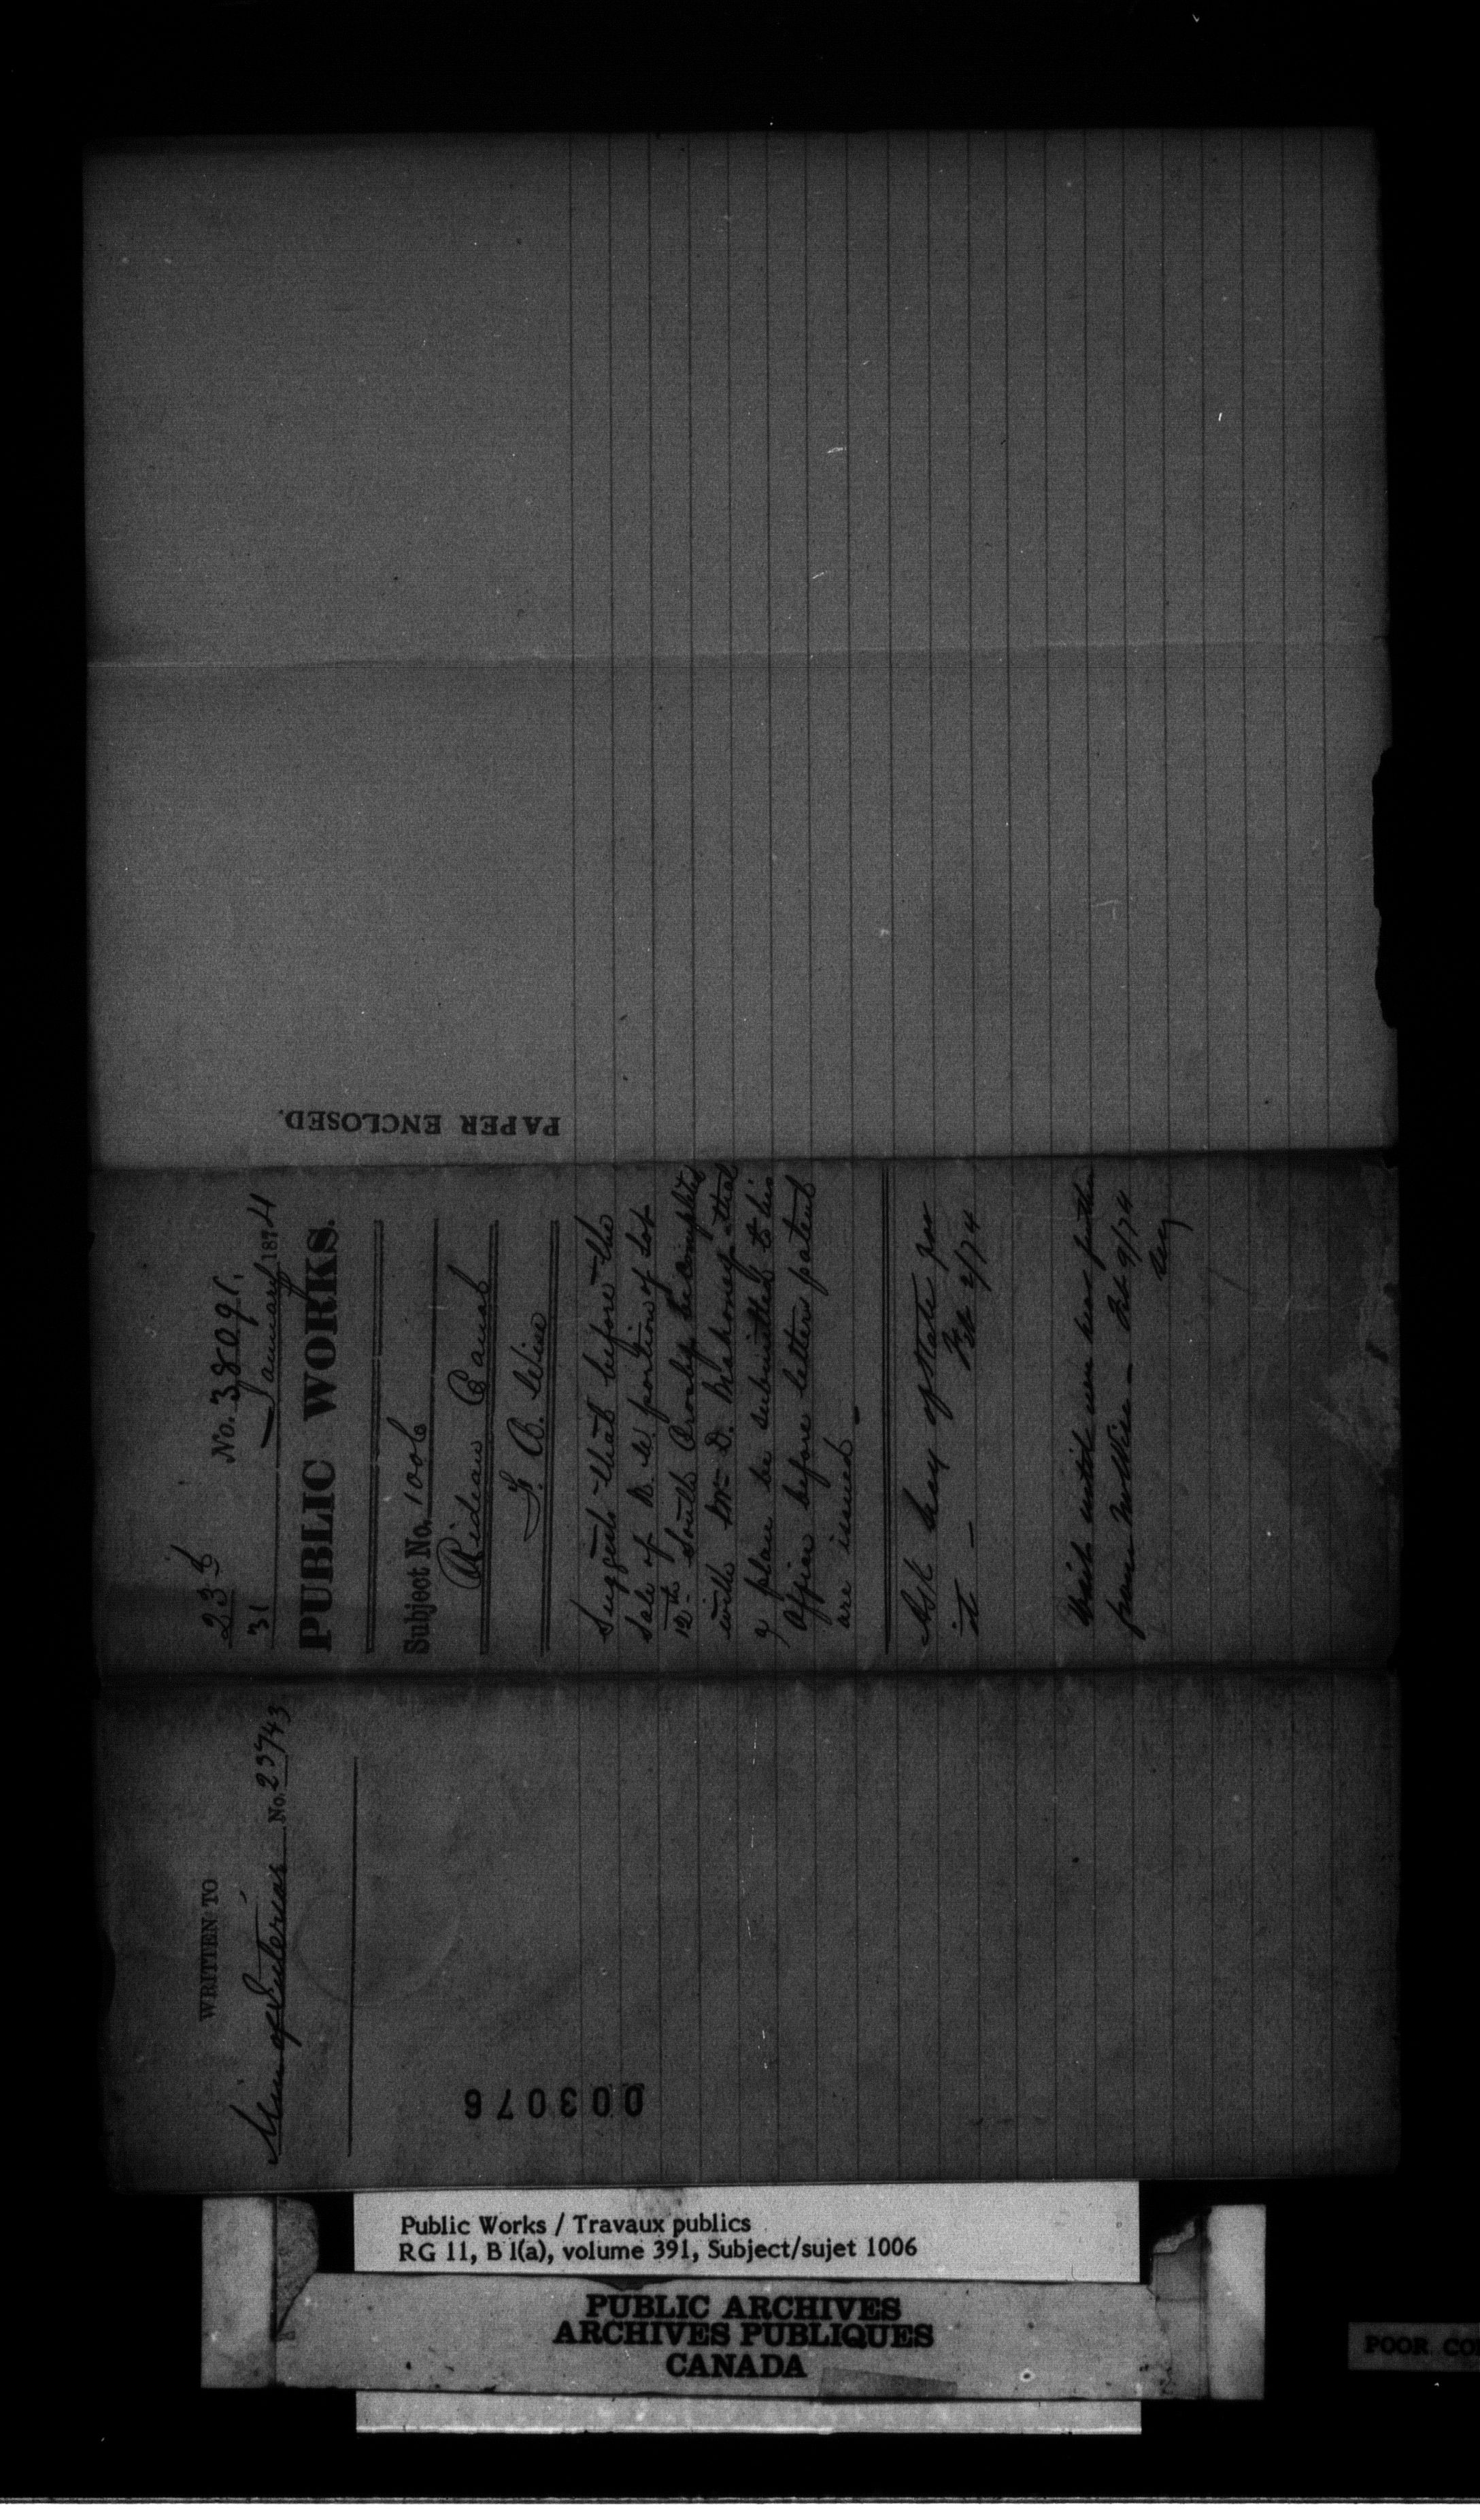 PAPER ENCLOSED.
23 6
31
No. 38091.
January 1874
PUBLIC WORKS.
Subject No. 1006
Rideau Canal
F. A. Wise
Suggests that before the
Sale of N. W. portion of Lot
12th South Crosby be completed
with Mr D. Mahoney that
a plan be submitted to his
Office before letters patent
are issued
Ask Secy of State for
it - Feb 2/74
Wait until we hear further
from Mr Wise - Feb 9/74
Secy
WRITTEN TO
Min of Interior No. 23743
003076
Public Works / Travaux publics
RG 11, B 1(a), volume 391, Subject/sujet 1006
PUBLIC ARCHIVES
ARCHIVES PUBLIQUES
CANADA
POOR CO